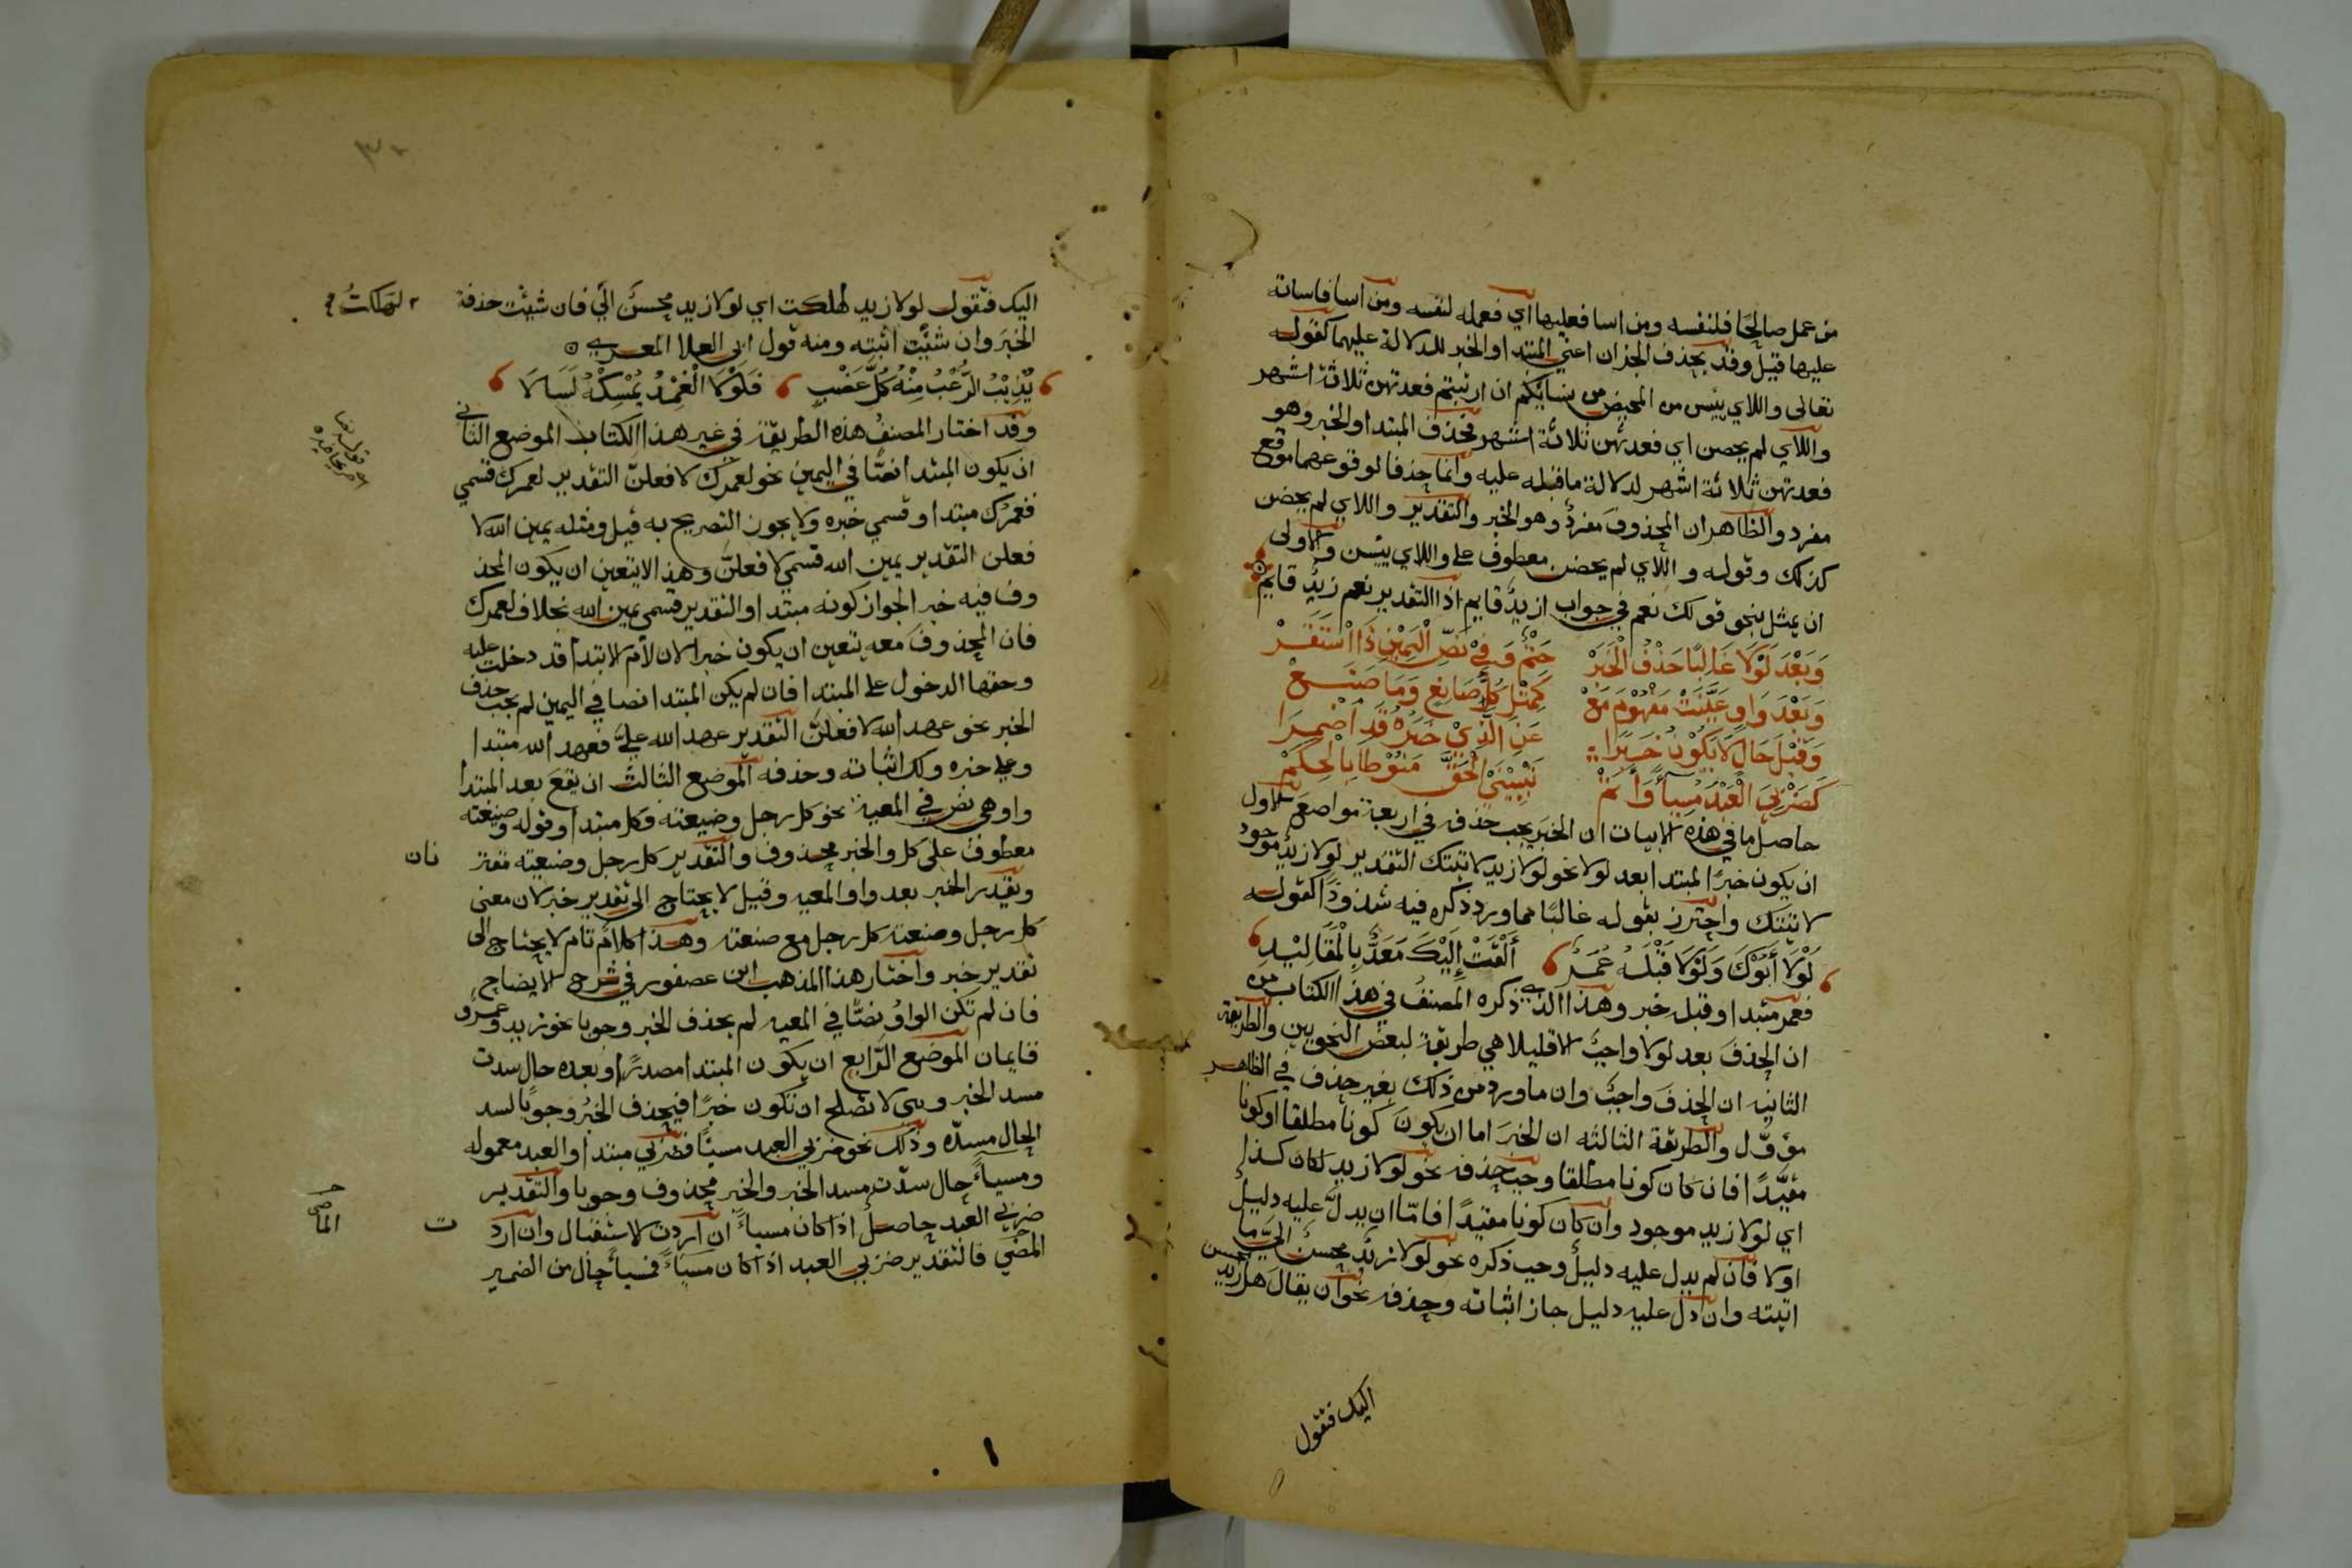 من عمل صالحا فلنفسه ومن اسا فعليها اي فعمله لنفسه ومن اسا فاساته
عليها قيل وقد يحذف الجزان اعني المبتدا والخبر للدلالة عليهما كقوله
تعالى واللاي ييسن من المحيض من نسايكم ان ارتبتم فعدتهن ثلاثة اشهر
واللاي لم يحضن اي فعدتهن ثلاثة اشهر فحذف المبتدا والخبر وهو
فعدتهن ثلاثة اشهر لدلالة ما قبله عليه وانما حذفا لوقوعهما موقع
مفرد والظاهر ان المحذوف مفرد وهو الخبر والتقدير واللاي لم يحضن
كذلك وقوله واللاي لم يحضن معطوف على واللاي ييسن والاولى
ان يمثل بنحو قولك نعم في جواب ازيد قايم اذ التقدير نعم زيد قايم
وَبَعْدَ لَوْلَا غَالِبًا حَذْفُ الْخَبَرْ حَتْمٌ وَفِي نَصِّ الْيَمِيْنِ ذَا اسْتَقَرْ
وَبَعْدَ وَاوٍ عَيَّنَتْ مَفْهُوْمَ مَعْ كَمِثْلِ كُلُّ صَانِعٍ وَمَا صَنَعْ
وَقَبْلَ حَالٍ لَا يَكُوْنُ خَبَرَا عَنِ الَّذِيْ خَبَرُهُ قَدْ أُضْمِرَا
كَضَرْبِيَ الْعَبْدَ مُسِيأً وَأَتَمْ تَبْيِيْنِيَ الْحَقَّ مَنُوْطًا بِالْحِكَمْ
حاصل ما في هذه الابيات ان الخبر يجب حذفه في اربعة مواضع الاول
ان يكون خبرًا لمبتدا بعد لولا نحو لولا زيد لاتيتك التقدير لولا زيد موجود
لاتيتك واحترز بقوله غالبًا مما ورد ذكره فيه شذوذًا كقوله
لَوْلَا أَبُوْكَ وَلَوْلَا قَبْلَهُ عُمَرُ أَلْقَتْ إِلَيْكَ مَعَدٌّ بِالْمَقَالِيْدِ
فعمر مبتدا وقبله خبر وهذا الذي ذكره المصنف في هذا الكتاب من
ان الحذف بعد لولا واجب الا قليلا هي طريقة لبعض النحويين والطريقة
الثانية ان الحذف واجب وان ما ورد من ذلك بغير حذف في الظاهر
مؤوّل والطريقة الثالثه ان الخبر اما ان يكون كونا مطلقا او كونا
مقيدًا فان كان كونا مطلقا وجب حذفه نحو لولا زيد لكان كذا
اي لولا زيد موجود وان كان كونا مقيدًا فامّا ان يدل عليه دليل
اولا فان لم يدل عليه دليل وجب ذكره نحو لولا زيد محسن اليّ ما
اتيته وان دل عليه دليل جاز اثباته وحذفه نحو ان يقال هل زيد محسن
اليك فتقول
اليك فتقول لولا زيد لهلكت اي لولا زيد محسن الّي فان شيت حذفة
لهلكتُ
الخبر وان شيت اثبته ومنه قول ابي العلا المعري
يُذِيْبُ الرُّعْبُ مِنْهُ كُلَّ عَضْبٍ فَلَوْلَا الْغِمْدُ يُمْسِكُهُ لَسَالَا
وقد اختار المصنف هذه الطريقة في غير هذا الكتاب الموضع الثاني
ان يكون المبتدا نصًّا في اليمين نحو لعمرك لافعلنّ التقدير لعمرك قسمي
فعمرك مبتدا وقسمي خبره ولا يجوز التصريح به قيل ومثله يمين الله لا
فعلن التقدير يمين الله قسمي لافعلنّ وهذا لا يتعين ان يكون المحذ
وف فيه خبرا لجواز كونه مبتدا والتقدير قسمي يمين الله بخلاف لعمرك
فان المحذوف معه يتعين ان يكون خبرا لان لام الابتدا قد دخلت عليه
وحقها الدخول على المبتدا فان لم يكن المبتدا نصا في اليمين لم يجب حذف
الخبر نحو عهد الله لافعلنّ التقدير عهد الله عليّ فعهد الله مبتدا
وعلي خبره ولك اثباته وحذفه الموضع الثالث ان يقع بعد المبتدا
واو هي نص في المعية نحو كل رجل وضيعته فكل مبتدا وقوله وضيعته
معطوف على كل والخبر محذوف والتقدير كل رجل وضيعته مقتر
نان
ويقدر الخبر بعد واو المعيه وقيل لا يحتاج الى تقدير خبر لان معنى
كل رجل وضيعته كل رجل مع ضيعته وهذا كلام تام لا يحتاج الى
تقدير خبر واختار هذا المذهب ابن عصفور في شرح الايضاح
فان لم تكن الواو نصًّا في المعيه لم يحذف الخبر وجوبا نحو زيد وعمرو
قايمان الموضع الرّابع ان يكون المبتدا مصدرًا وبعده حال سدت
مسد الخبر وهي لا تصلح ان تكون خبرًا فيحذف الخبر وجوبًا لسد
الحال مسدّه وذلك نحو ضربي العبد مسيئًا فضربي مبتدا والعبد معموله
ومسياءً حال سدّت مسد الخبر والخبر محذوف وجوبا والتقدير
ضربي العبد حاصل اذا كان مسياءً ان اردت الاستقبال وان ارد
ت
المضي فالتقدير ضربي العبد اذ كان مسياءً فمسيأ حال من الضمير